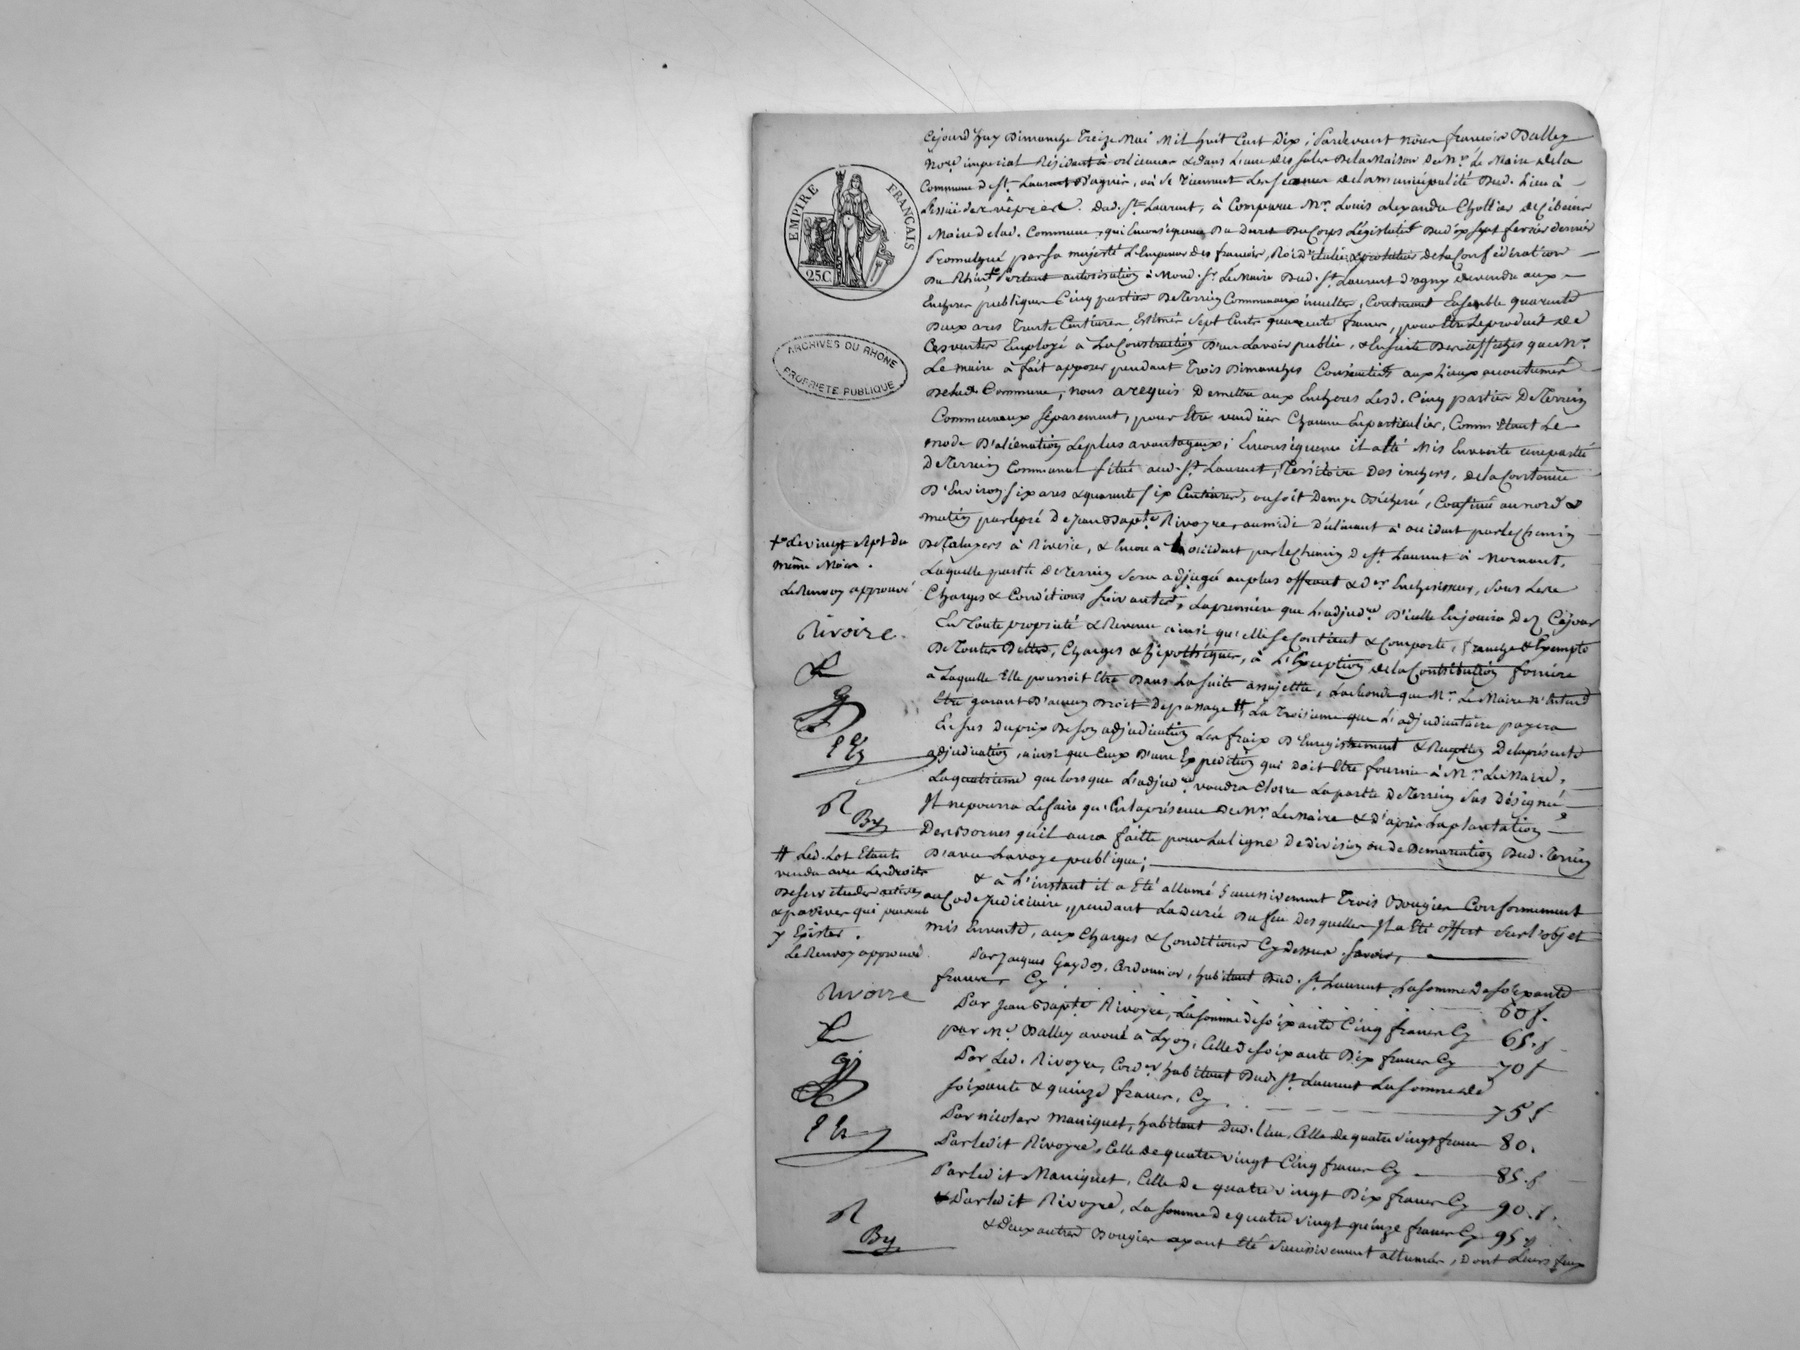 EMPIRE FRANÇAIS
25C
ARCHIVES DU RHONE
PROPRIETE PUBLIQUE
Cejourd'huy Dimanche Treize Mai Mil huit Cent Dix, Pardevant Nous françois Balley
No.re imperial Résidant à orlienas & dans L'une des salles De la Maison de Mr. Le Maire de la
Commune de St. Laurent D'agnis, où se Tiennent Les séances de la municipalité Dud. Lieu à
L'issüe des vêpres Dud. St. Laurent, à Comparu Mr. Louis alexandre Chollier de Cibeins
Maire de lad. Commune, qui En conséquence Du Decret Du Corps Législatif Du dix sept fevrier dernier
Promulgué par sa majesté L'Empereur des francois, Roi d'italie, & protecteur de la Confédération
Du Rhin, Portant autorisation à Mond. Sr. Le Maire Dud. St. Laurent d'agny De vendre aux
Encheres publiques Cinq parties De Terrein Communaux inutiles, Contenant Ensemble quarante
Deux ares Trente Centiares, Estimés Sept Cents quarente francs, pour Etre Le produit de
Ces ventes Employé à La Construction D'un Lavoir public, & En suite Des affiches que Mr.
Le maire à fait apposer pendant Trois Dimanches Consécutifs aux Lieux accoutumés
De lad. Commune, nous a requis De mettre aux Encheres Lesd. Cinq parties De Terrein
Communaux séparément, pour Etre vendües Chacune En particulier, Comm' Etant Le
mode D'aliénation Le plus avantageux; En conséquence il a été Mis En vente une partie
De Terrein Communal situé aud. St. Laurent, Territoire Des inchers, de la Contenue
D'Environ six ares & quarente six Centiares, ou soit Demye Bicherée, Confiné au nord &
matin par le pré De Jean Bapte. Rivoyre, au midi D'élinant à occident par le Chemin
De Taluyers à Riverie, & Encore à occident par le Chemin De St. Laurent à Mornant,
Laquelle partie De Terrein Sera adjugée au plus offrant & der. Encherisseur, Sous Les
Charges & Conditions suivantes, La premiere que L'adjudre. D'icelle En jouira Dez Cejour
En Toute propriété & Revenu ainsi qu'elle se Contient & Comporte, franche & Exempte
De Toutes Dettes, Charges & hipothéques, à L'Exception de la Contribution fonciere
à Laquelle Elle pourroit Etre Dans La suite assujettie, La seconde que Mr. Le Maire N'Entend
Etre garant D'aucun Droit De passage #, La Troisieme que L'adjudicataire payera
En sus Du prix De son adjudication Les fraix D'Enregistrement & Reception De la présente
adjudication, ainsi que Ceux D'une Expedition qui doit Etre fournie à Mr. Le Maire,
La quatrieme que lorsque L'adjudre. voudra Clorre La partie De Terrein Sus désigné
Il ne pourra Le faire qu'En la présence De Mr. Le Maire & d'après La plantation
Des Bornes qu'il aura faitte pour La ligne De division ou de Demarcation Dud. Terrein
D'avec La voye publique;
& à L'instant il a Eté allumé Successivement Trois Bougies Conformement
au Code Judiciaire, pendant La durée Du feu Desquelles Il a Eté offert Sur l'objet
mis En vente, aux Charges & Conditions Cy dessus, Savoir,
Par Jacques Gaydon, Cordonnier, habitant Dud. St. Laurent, La somme De soixante
francs, Cy 60 f.
Par Jean Bapte. Rivoyre, La somme De soixante Cinq francs Cy 65. f
par Mr. Balley avoué à Lyon, Celle De soixante Dix francs Cy 70 f
Par Led. Rivoyre, Corder. habitant Dud. St. Laurent La somme de
soixante & quinze francs, Cy 75 f
Par nicolas Maniquet, habitant Dud. Lieu, Celle De quatre vingt francs 80.
Par ledit Rivoyre, Celle De quatre vingt Cinq francs Cy 85. f
Par ledit Maniquet, Celle De quatre vingt Dix francs Cy 90. f.
& Par ledit Rivoyre, La somme De quatre vingt quinze francs Cy 95. f
& Deux autres Bougies ayant Eté Successivement allumées, Dont Leurs feux
Le vingt Sept Du
même Mois.
Le Renvoy approuvé
Rivoire
R
By
# Led. Lot Etant
vendu avec Les droits
De Servitudes actives
& passives qui peuvent
y Exister.
Le Renvoy approuvé
Rivoire
R
By